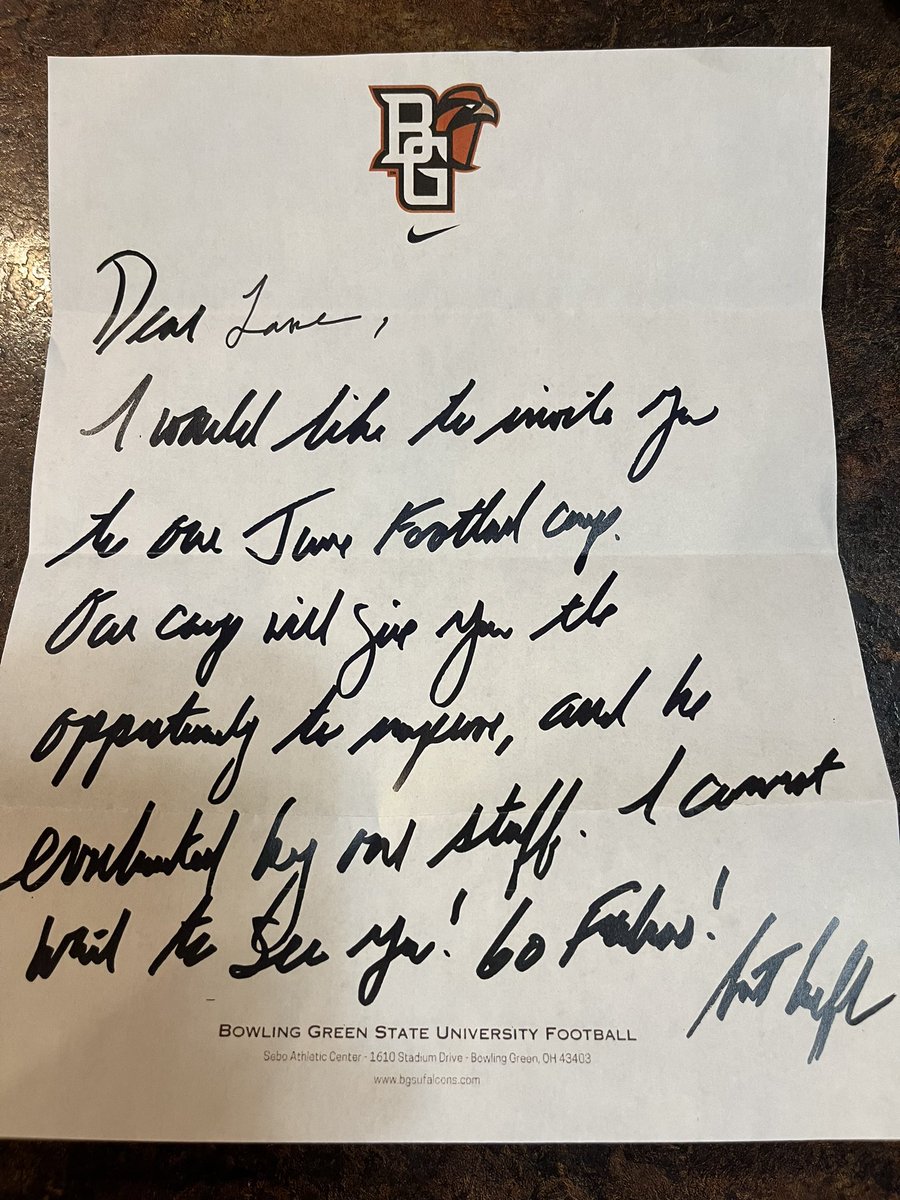 BG
Dear Lane,
I would like to invite you
to our June Football camp.
Our camp will give you the
opportunity to improve, and be
evaluated by our staff. I cannot
wait to see you! Go Falcons!
BOWLING GREEN STATE UNIVERSITY FOOTBALL
Sebo Athletic Center - 1610 Stadium Drive - Bowling Green, OH 43403
www.bgsufalcons.com